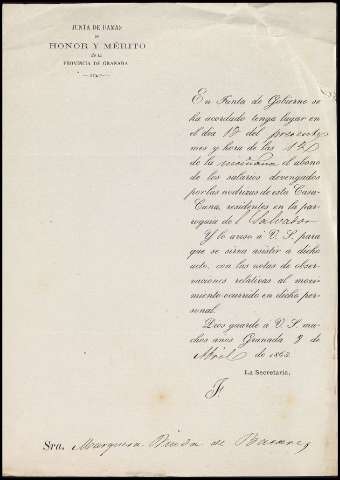 JUNTA DE DAMAS
DE
HONOR Y MÉRITO
de la
PROVINCIA DE GRANADA
En Junta de Gobierno se
ha acordado tenga lugar en
el dia 10 del presente
mes y hora de las
de la mañana el abono
de los salarios devengados
por las nodrizas de esta Casa-
Cuna, residentes en la par-
roquia del Salvador
Y lo aviso á V. S. para
que se sirva asistir á dicho
acto, con las notas de obser-
vaciones relativas al movi-
miento ocurrido en dicho per-
sonal.
Dios guarde á V. S. mu-
chos años Granada 8 de
Abril de 186
La Secretaria,
F.
Sra. Marquesa Viuda de